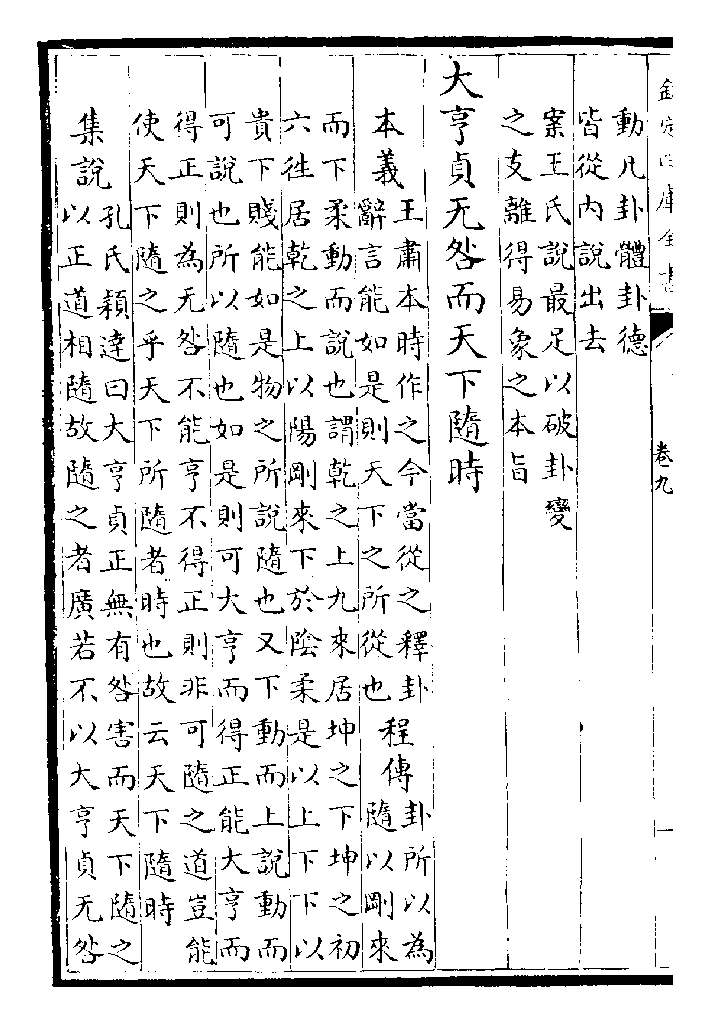 欽定四庫全書
卷九
一
動凡卦體卦德
皆從内說出去
案王氏說最足以破卦變
之支離得易象之本旨
大亨貞无咎而天下隨時
本義
王肅本時作之今當從之釋卦
辭言能如是則天下之所從也
程傳
卦所以為
隨以剛來
而下柔動而說也謂乾之上九來居坤之下坤之初
六徃居乾之上以陽剛來下於陰柔是以上下下以
貴下賤能如是物之所說隨也又下動而上說動而
可說也所以隨也如是則可大亨而得正能大亨而
得正則為无咎不能亨不得正則非可隨之道豈能
使天下隨之乎天下所隨者時也故云天下隨時
集說
孔氏穎達曰大亨貞正無有咎害而天下隨之
以正道相隨故隨之者廣若不以大亨貞无咎